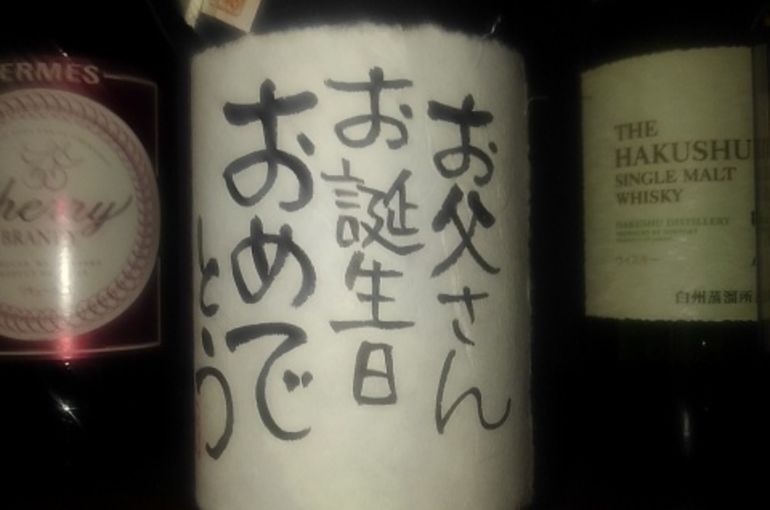 お父さん
お誕生日
おめで
とう
HERMES
Cherry
BRANDY
THE
HAKUSHU
SINGLE MALT
WHISKY
HAKUSHU DISTILLERY
ウイスキー
白州蒸溜所